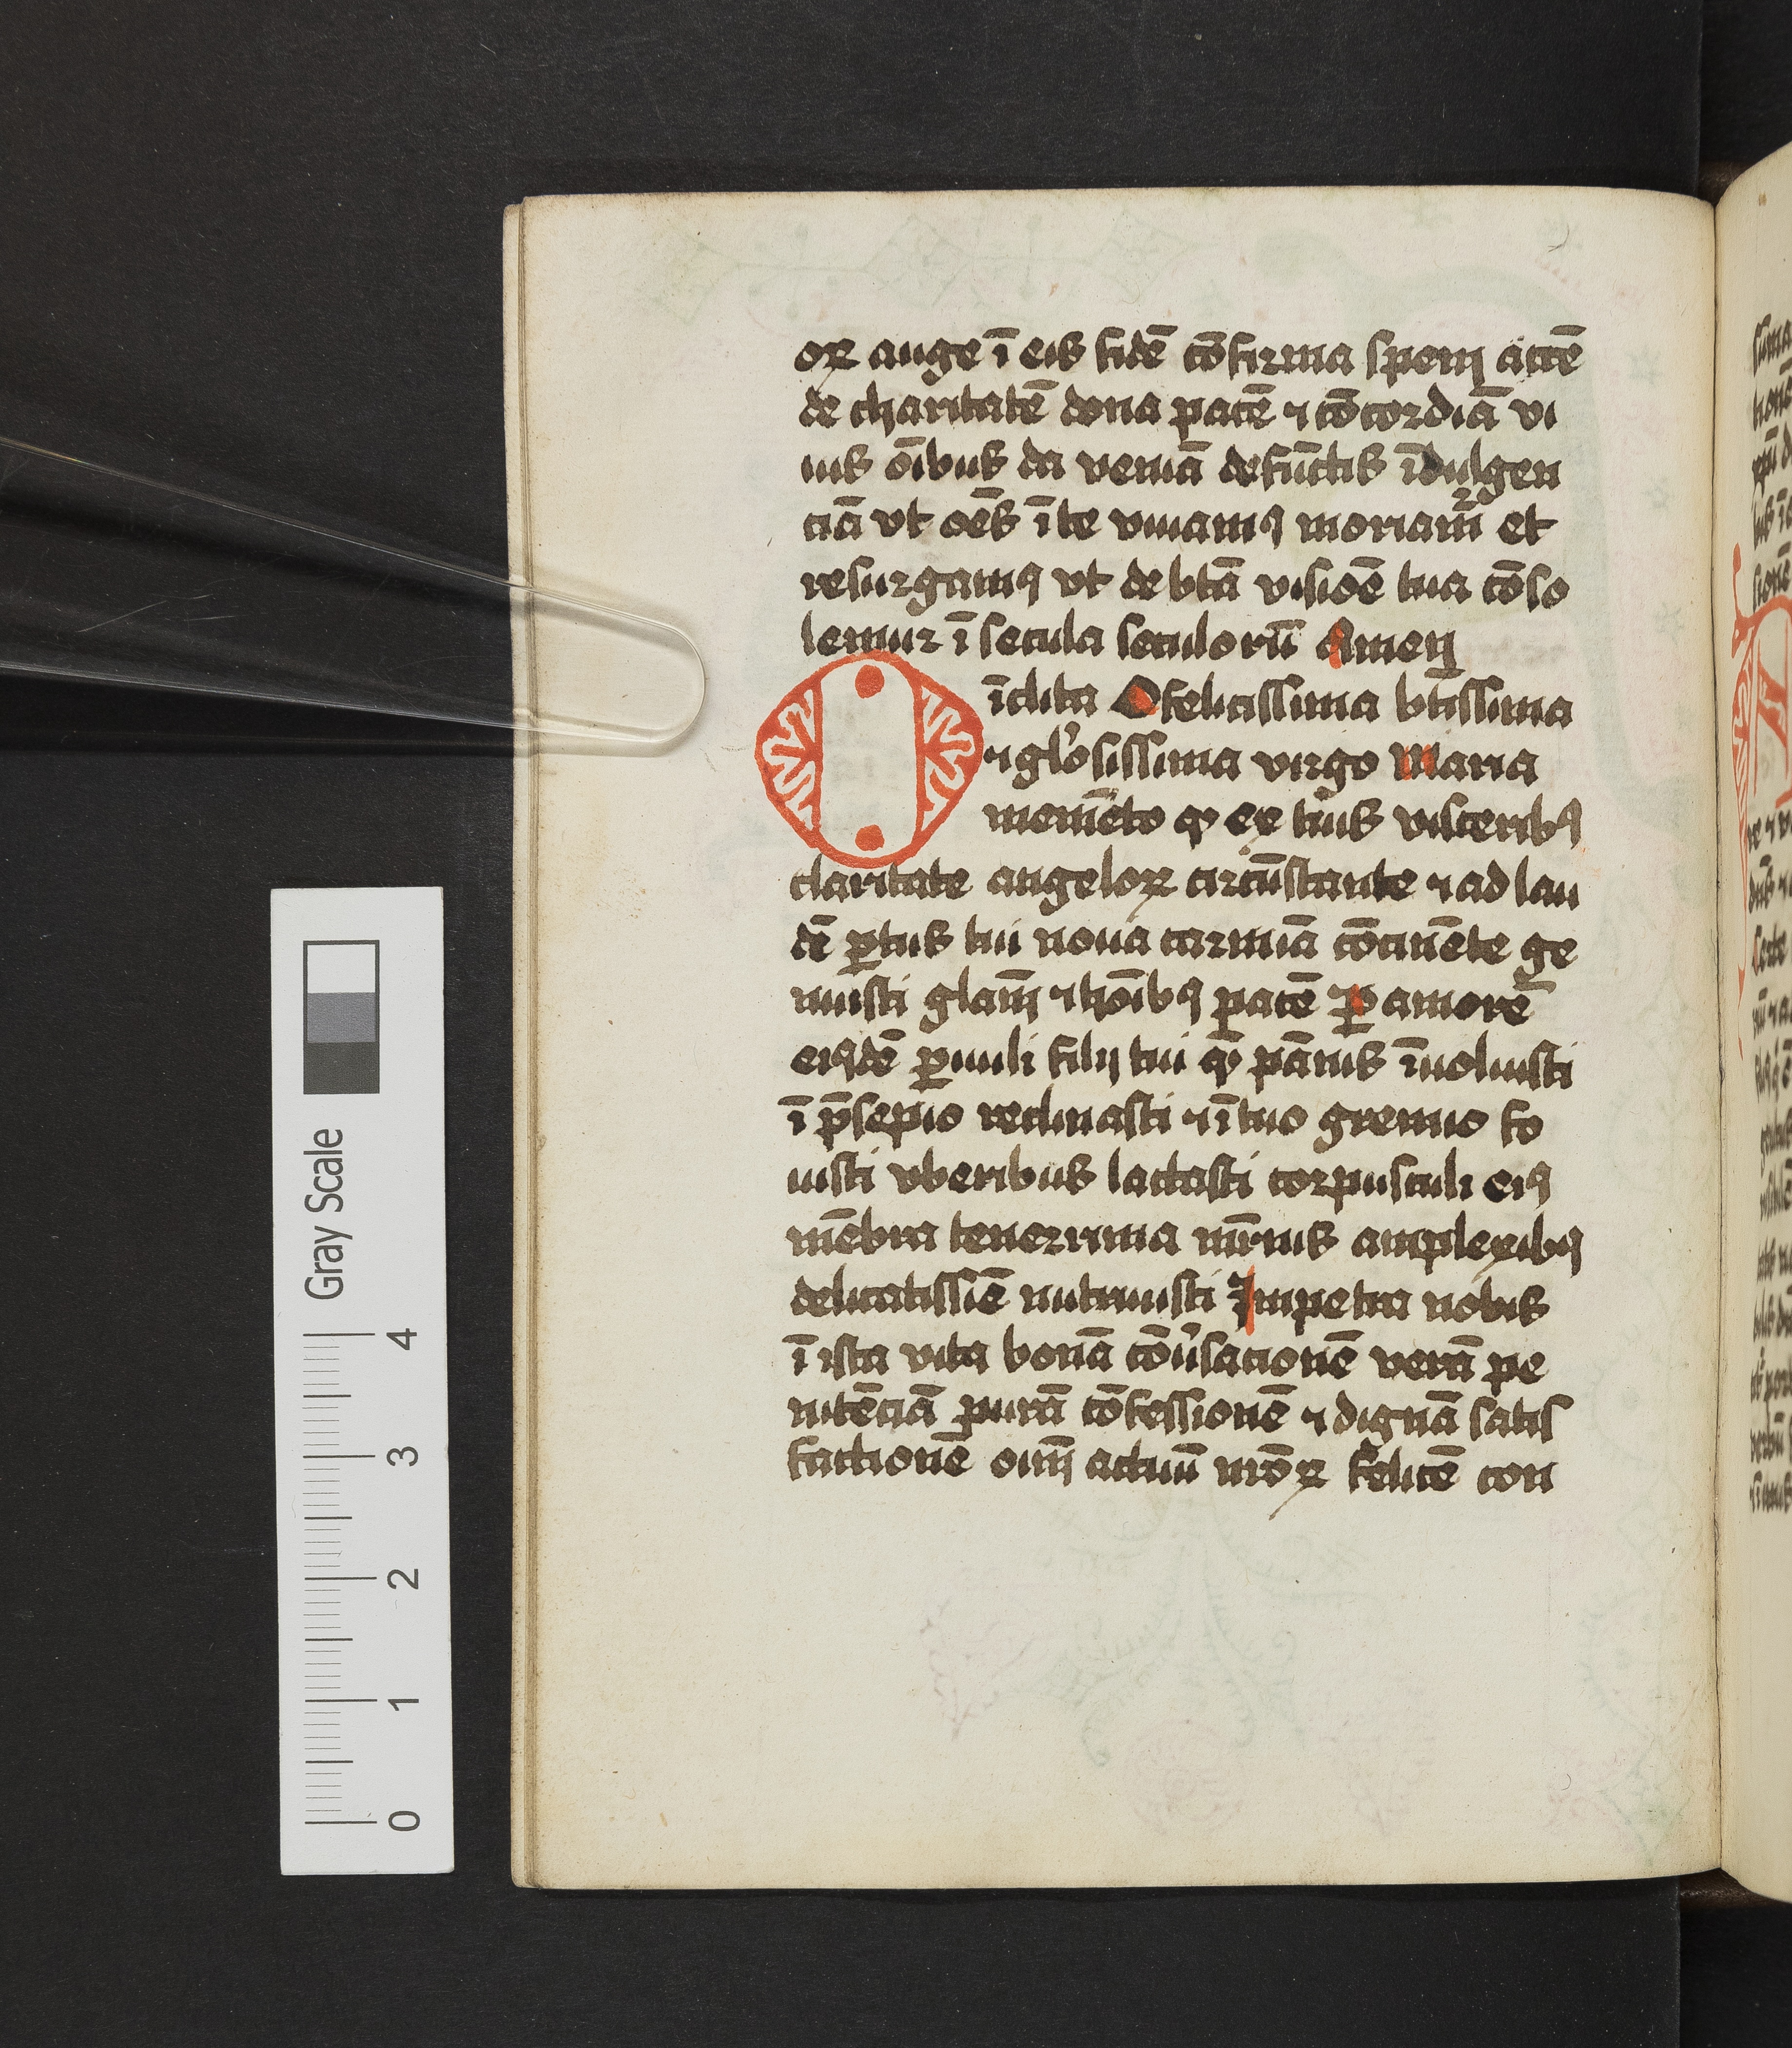 oꝝ auge ī eis fidē cōfirma spem accē
de charitatē dona pacē ⁊ cōcordiā vi
uis oībus da veniā defūctis īdulgen
ciā vt oēs ī te viuamꝰ moriam̄r et
resurgamꝰ vt de btā visiōe tua cōso
lemur ī secula seculorū Amen
O īclita O felicissima btīssima
⁊ glo̓sissima virgo Maria
memēto ꝙ ex tuis visceribꝰ
claritate angeloꝝ circūstante ⁊ ad lau
dē ꝑtus tui noua carmīa cōcinēte ge
nuisti glam̄ ⁊ hoībꝰ pacē ꝑ amorē
eiꝰdē ꝑuuli filij tui qē pānis īuoluisti
ī p̄sepio reclinasti ⁊ ī tuo gremio fo
uisti vberibus lactasti corpusculi eiꝰ
mēbra tenerrima mr̄nis amplexibꝰ
delicatissīe nutriuisti Impetra nobis
ī ista vita bonā cōu̓sacionē verā pe
nitēciā purā cōfessionē ⁊ dignā satis
factionē oīm actuū nr̄oꝝ felicē con
Gray Scale
4
3
2
1
0